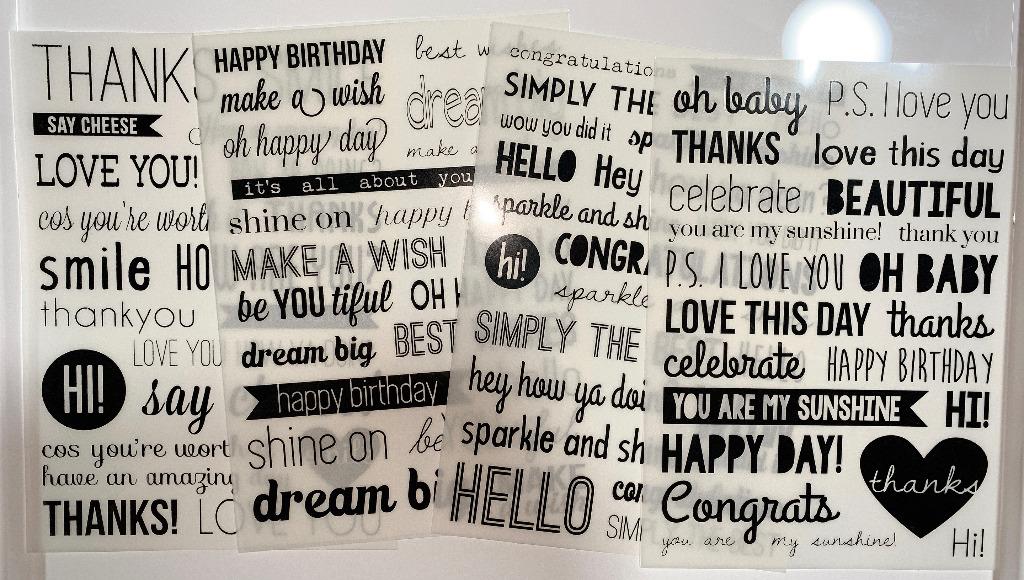 THANKS
SAY CHEESE
LOVE YOU!
cos you're
smile
thankyou
LOVE YOU
HI!
say
cos you're
have an
THANKS!
HAPPY BIRTHDAY
best
make a wish
oh happy day
make a
it's all about you
shine on happy
MAKE A WISH
be YOU tiful OH
dream big BEST
happy birthday
shine on
dream
SIMPLY THE
wow you did it
HELLO Hey
sparkle and
hi!
sparkle
SIMPLY THE
hey how ya
sparkle and
HELLO
oh baby P.S. I love you
THANKS love this day
celebrate BEAUTIFUL
you are my sunshine! thank you
P.S. I LOVE YOU OH BABY
LOVE THIS DAY thanks
celebrate HAPPY BIRTHDAY
YOU ARE MY SUNSHINE HI!
HAPPY DAY!
thanks
Congrats
you are my sunshine!
Hi!